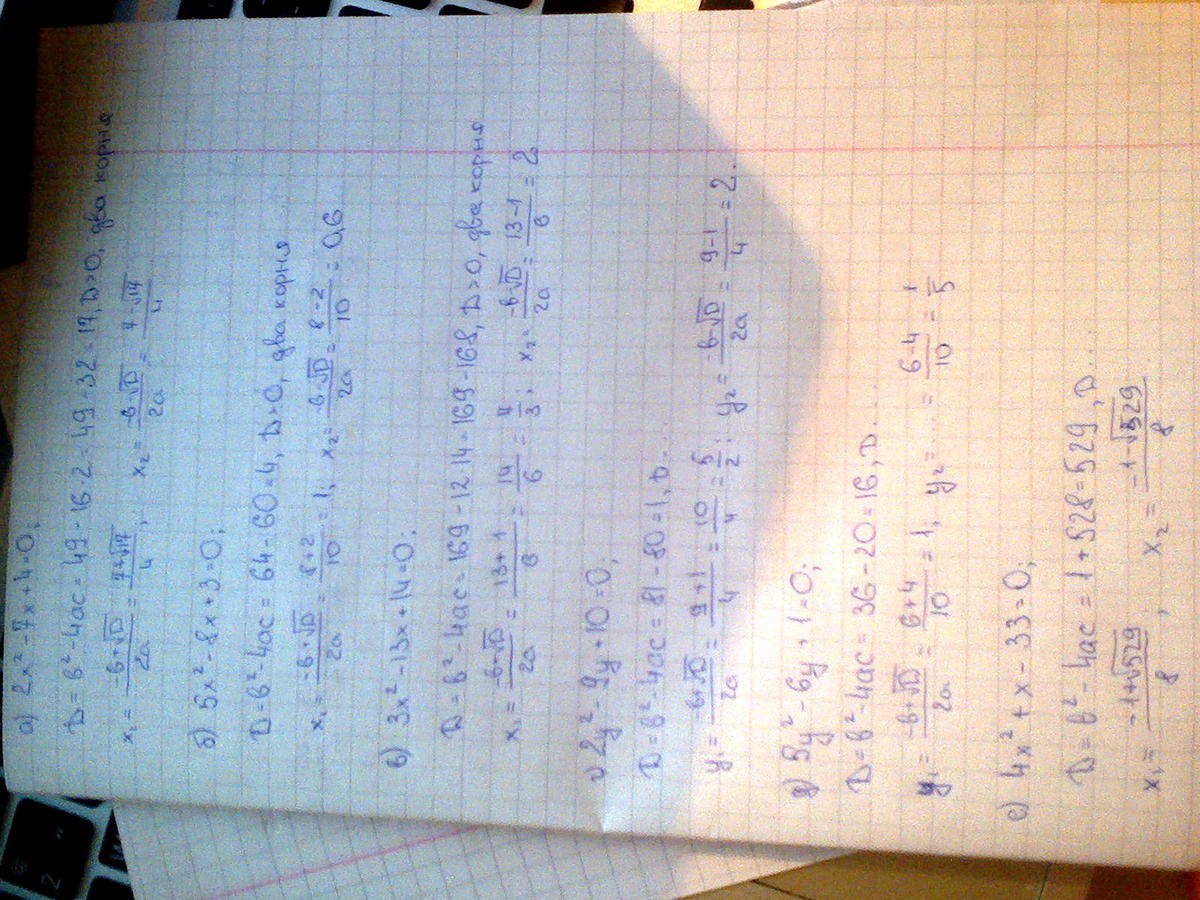 а) 2x² - 7x + 4 = 0;
D = b² - 4ac = 49 - 16·2 = 49 - 32 = 17, D > 0, два корня
x₁ = (-b+√D)/2a = (7+√17)/4, x₂ = (-b-√D)/2a = (7-√17)/4
б) 5x² - 8x + 3 = 0;
D = b² - 4ac = 64 - 60 = 4, D > 0, два корня
x₁ = (-b+√D)/2a = (8+2)/10 = 1; x₂ = (-b-√D)/2a = (8-2)/10 = 0,6
в) 3x² - 13x + 14 = 0;
D = b² - 4ac = 169 - 12·14 = 169 - 168, D > 0, два корня
x₁ = (-b+√D)/2a = (13+1)/6 = 14/6 = 7/3; x₂ = (-b-√D)/2a = (13-1)/6 = 2
г) 2y² - 9y + 10 = 0;
D = b² - 4ac = 81 - 80 = 1, D...
y₁ = (-b+√D)/2a = (9+1)/4 = 10/4 = 5/2; y₂ = (-b-√D)/2a = (9-1)/4 = 2.
д) 5y² - 6y + 1 = 0;
D = b² - 4ac = 36 - 20 = 16, D....
y₁ = (-b+√D)/2a = (6+4)/10 = 1, y₂ = .... = (6-4)/10 = 1/5
е) 4x² + x - 33 = 0;
D = b² - 4ac = 1 + 528 = 529, D...
x₁ = (-1+√529)/8, x₂ = (-1-√529)/8